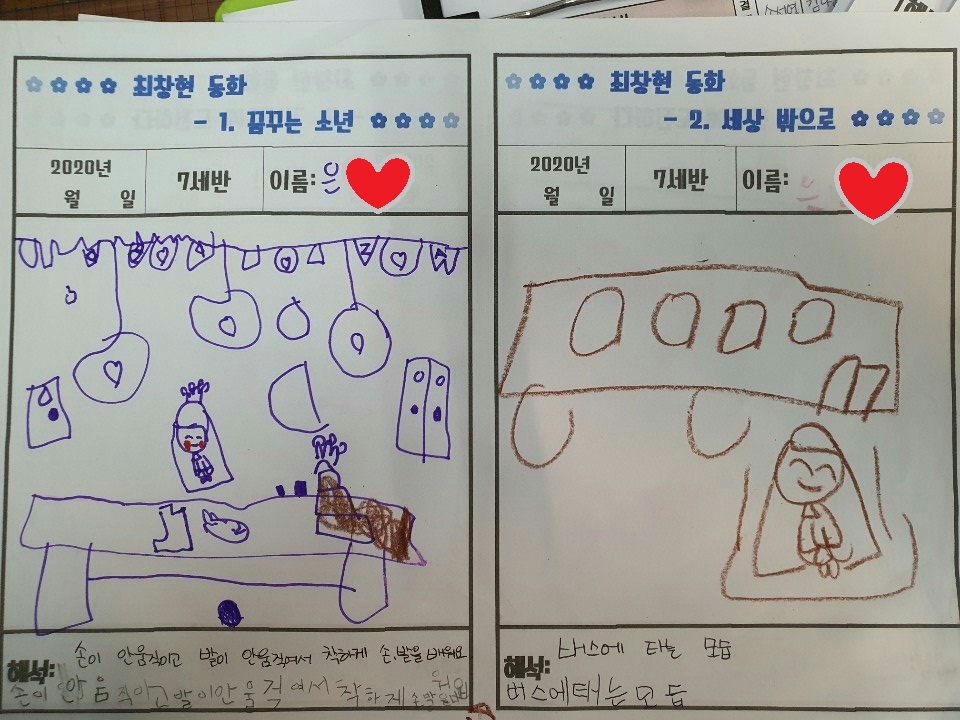 최창현 동화
- 1. 꿈꾸는 소년
2020년
월 일
7세반
이름: 은
해석: 손이 안움직이고 발이 안움직여서 착하게 손,발을 배워요
손이 안움직이고발이안움직여서 착하게 손발을배워요
최창현 동화
- 2. 세상 밖으로
2020년
월 일
7세반
이름:
해석: 버스에 타는 모습
버스에타는모습